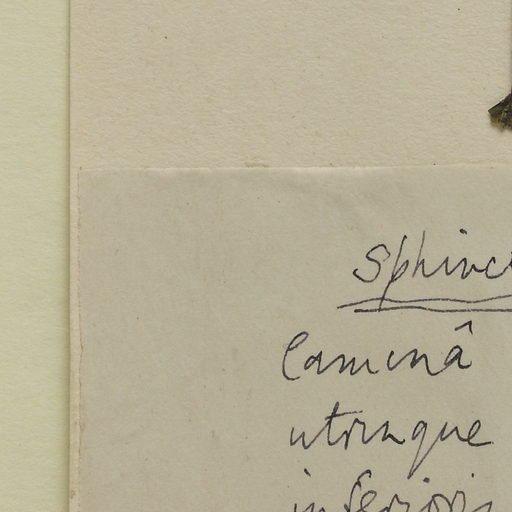 Sphinc
Laminâ
utrinque
inferioris